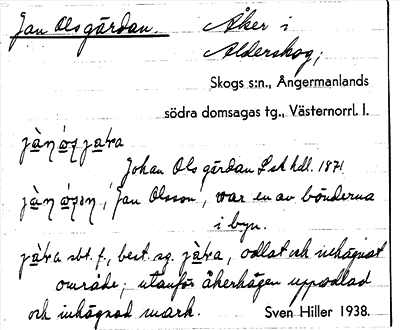 Jan Olsgärdan. Åker i
Alderskog;
Skogs s:n., Ångermanlands
södra domsagas tg., Västernorrl. l.
Johan Ols gärdan Lsk hdl. 1871
Jan Olsson, var en av bönderna
i byn.
sbt. f., best. sg. odlat och inhägnat
område; utanför åkerhägen uppodlad
och inhägnad mark. Sven Hiller 1938.